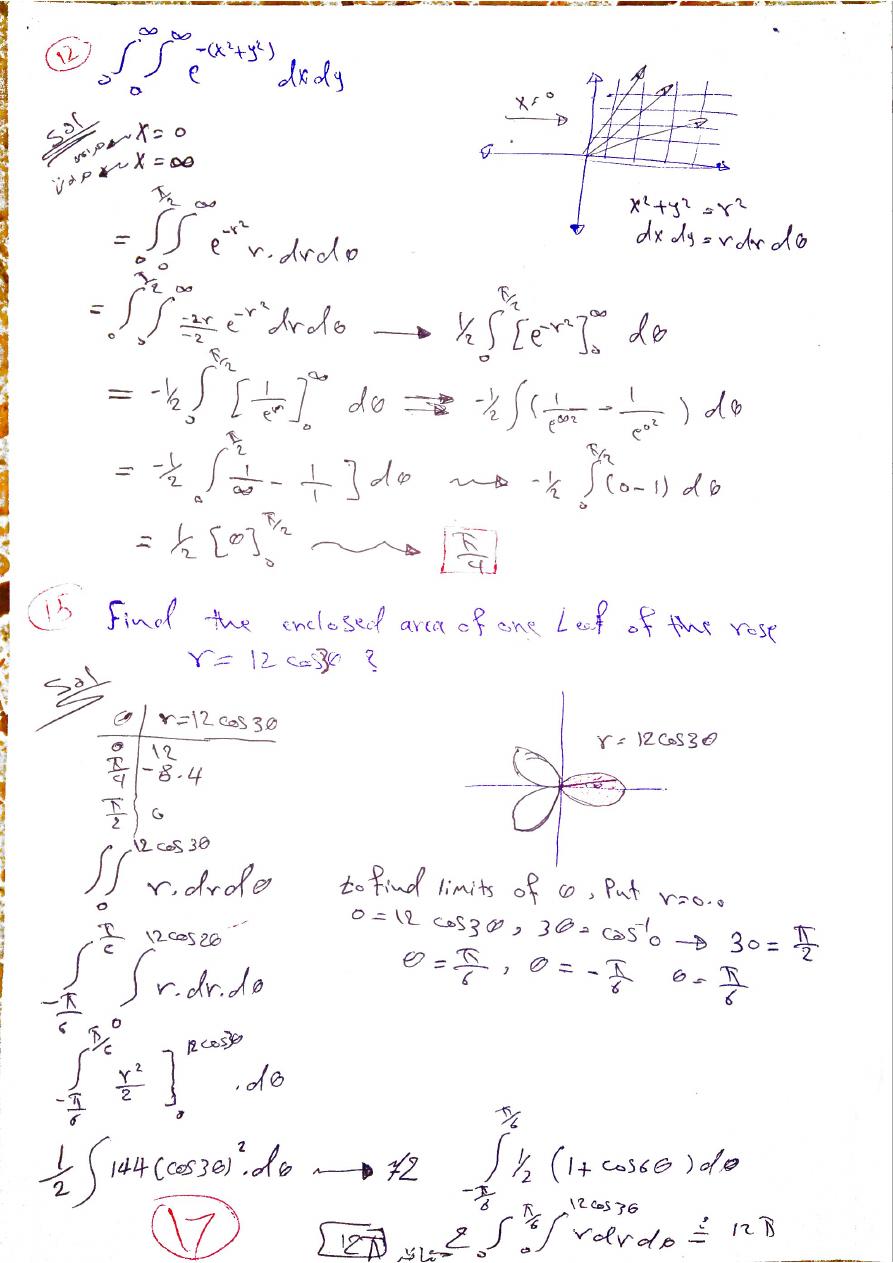 12 ∫₀^∞ ∫₀^∞ e^-(x²+y²) dx dy
Sol
x = 0
x = ∞
x = 0
x² + y² = r²
dx dy = r dr dθ
= ∫₀^π/2 ∫₀^∞ e^-r² r . dr dθ
= ∫₀^π/2 ∫₀^∞ -2r/-2 e^-r² dr dθ → ½ ∫₀^π/2 [e^-r²]₀^∞ dθ
= -½ ∫₀^π/2 [ 1/ ]₀^∞ dθ ⇒ -½ ∫ ( 1/e^∞2 - 1/e^0² ) dθ
= -½ ∫₀^π/2 1/∞ - 1/1 ] dθ → -½ ∫₀^π/2 (0-1) dθ
= ½ [θ]₀^π/2 → π/4
15 Find the enclosed area of one Leaf of the rose
r = 12 cos3θ ?
Sol
θ | r=12 cos 3θ
0 | 12
π/4 | -8.4
π/2 | 0
r = 12 cos3θ
∫∫₀^12 cos 3θ r . dr dθ
to find limits of θ, Put r=0..
0 = 12 cos 3θ, 3θ = cos⁻¹0 → 3θ = π/2
θ = π/6, θ = -π/6 θ = π/6
∫_-π/6^π/6 ∫₀^12cos2θ r . dr . dθ
∫_-π/6^π/6 r²/2 ]₀^12cos3θ . dθ
½ ∫ 144 (cos3θ)² . dθ → 72 ∫_-π/6^π/6 ½ (1 + cos6θ) dθ
12π 2 ∫₀^π/6 ∫₀^12cos3θ r dr dθ ≟ 12π
17